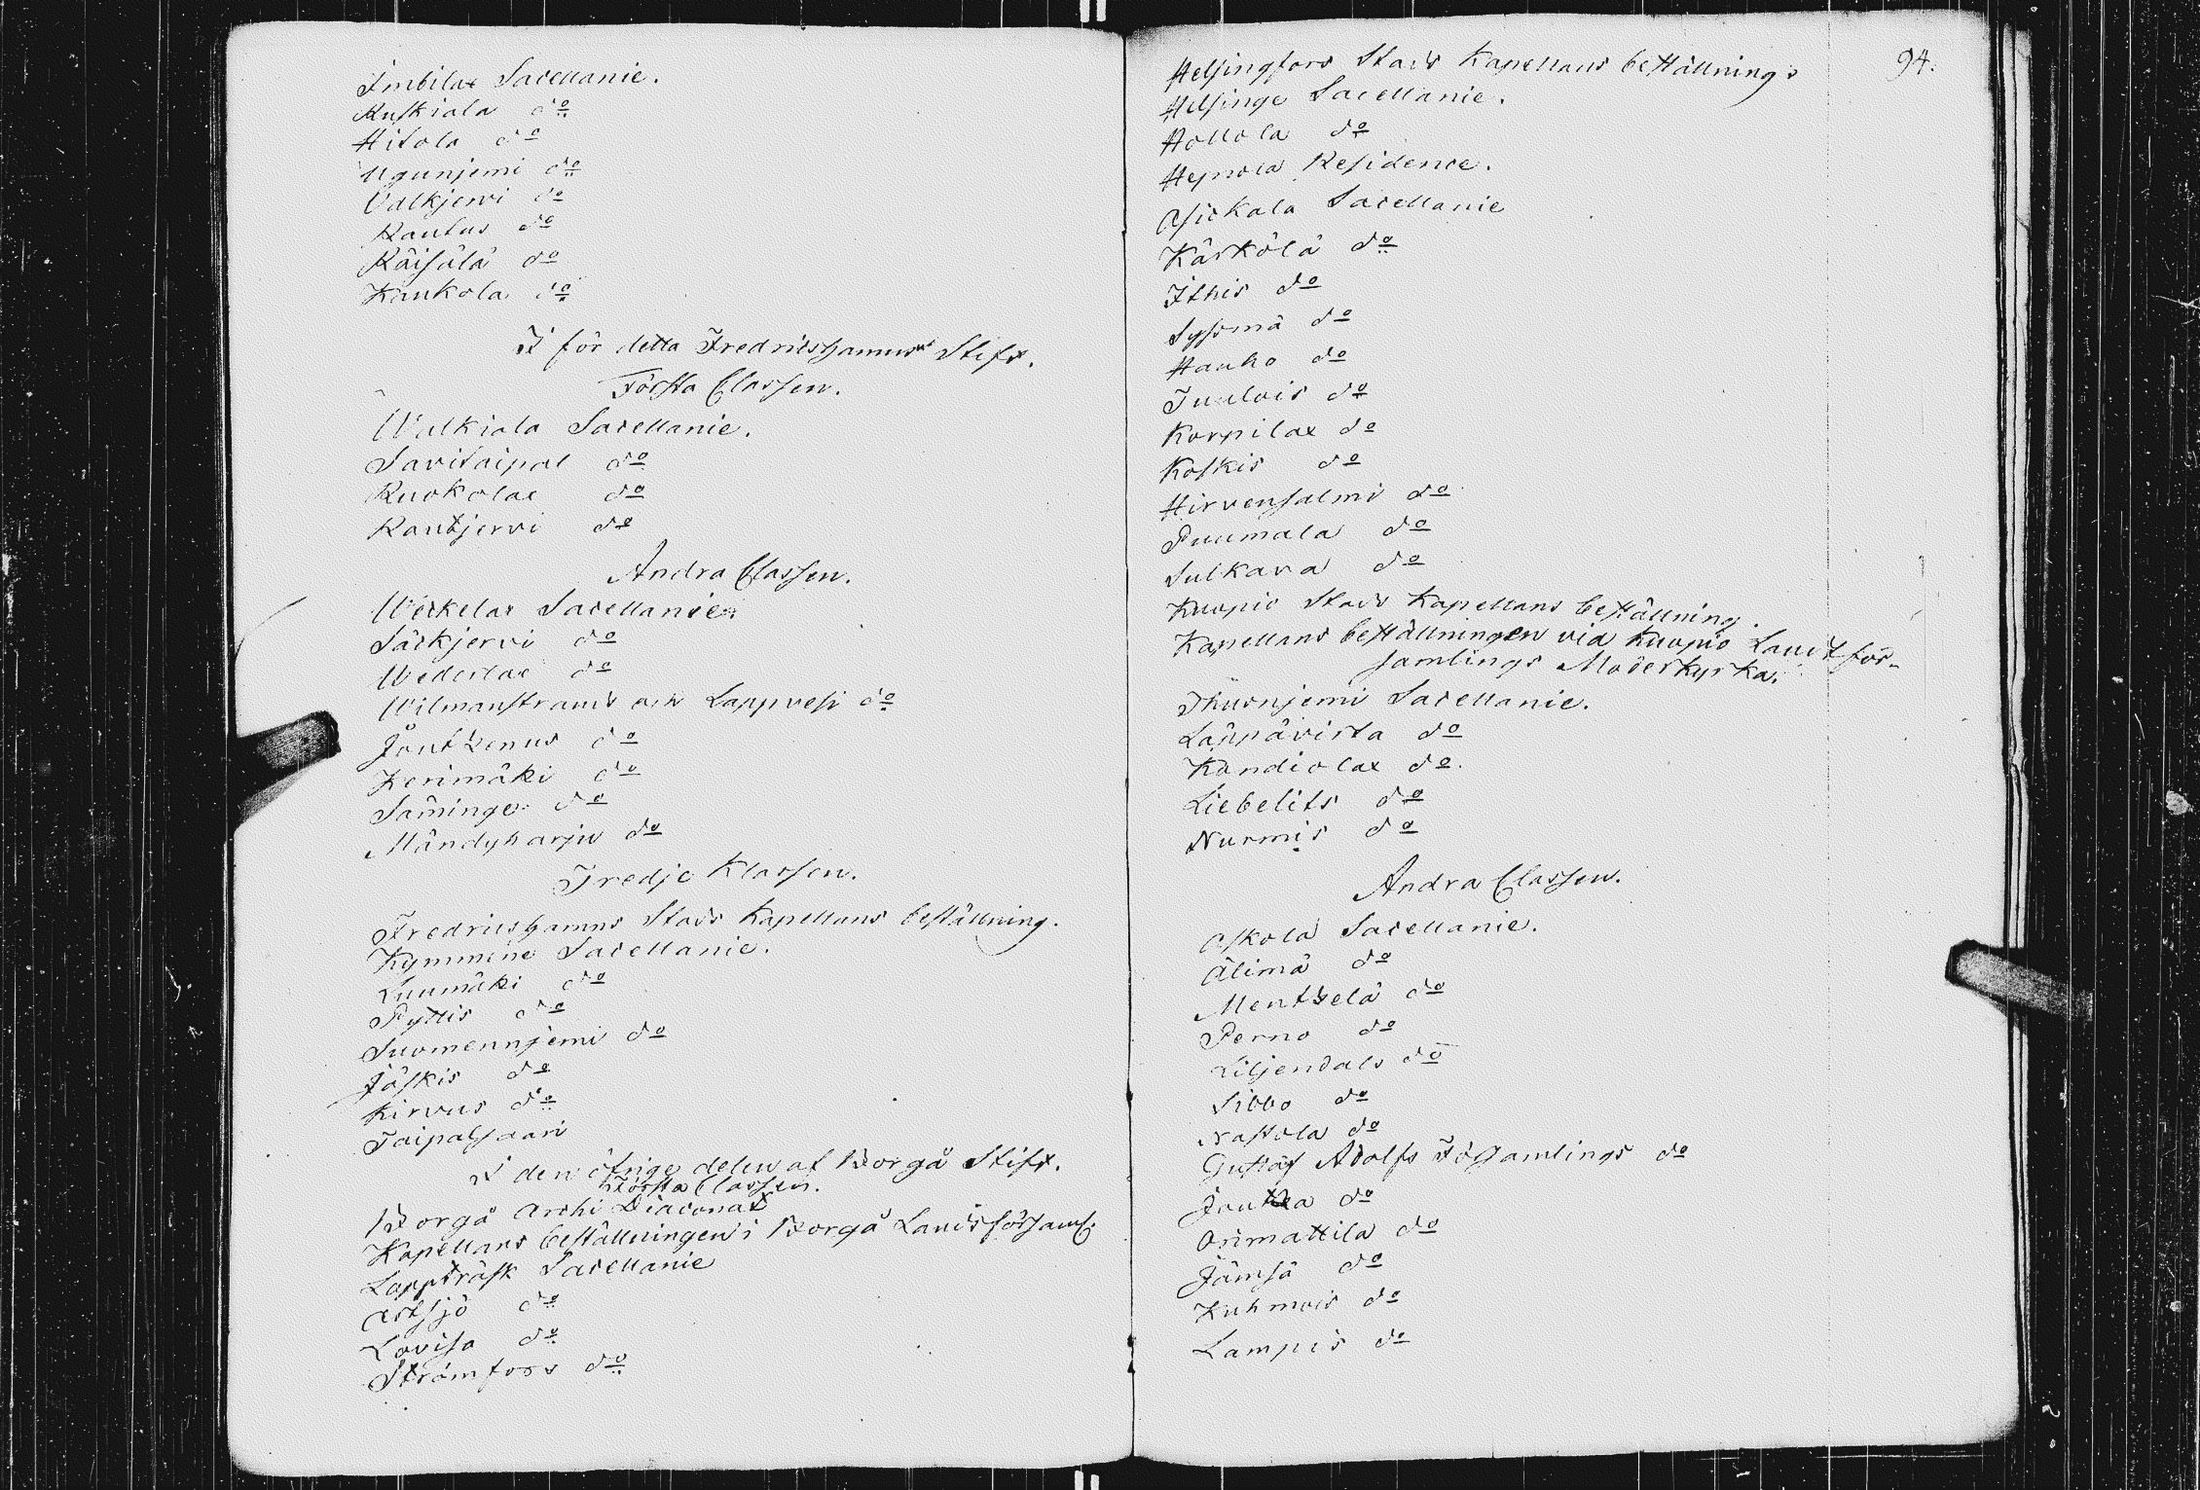 Imbilax Sacellanie.
Ruskiala do
Hitola do
Ugunjemi do
Valkjerwi do
Rautus do
Räisälä do
Kaukola do
I för detta Fredrichshamns Stift.
Första Classen.
Walkiala Sacellanie.
Savitaipal do
Ruokolax do
Rautjervi do
Andra Classen.
Weckelax Sacellanie.
Säckjervi do
Wederlax do
Wilmanstrands och Lappvesi do
Joutzenus do
Kerimäki do
Säminge do
Mändyharju do
Tredje Klassen.
Fredrichshamns Stads Kapellans beställning.
Kymmene Sacellanie.
Luumäki do
Pyttis do
Suomennjemi do
Jäskis do
Kirvus do
Taipalsaari
I den öfrige delen af Borgå Stift.
Första Classen.
Borgå Archi Diaconat
Kapellans beställningen i Borgå Landsförsaml.
Lappträsk Sacellanie
Artsjö do
Lovisa do
Strömfors do
94.
Helsingfors Stads Kapellans beställnings
Helsinge Sacellanie.
Hollola do
Heinola Residence.
Asickala Sacellanie
Kärkölä do
Ithis do
Syssmä do
Hauho do
Tuulois do
Korpilax do
Koskis do
Hirvensalmi do
Puumala do
Sulkava do
Kuopio Stads Kapellans beställning.
Kapellans beställningen vid Kuopio Landtför-
samlings Moderkyrka.
Thusnjemi Sacellanie.
Läppävirta do
Kondiolax do.
Liebelits do
Nurmis do
Andra Classen.
Askola Sacellanie.
Älimä do
Mentzelä do
Perno do
Liljendals do
Sibbo do
Nastola do
Gustaf Adolfs Församlings do
Joutza do
Orimattila do
Jämsä do
Kuhmois do
Lampis do